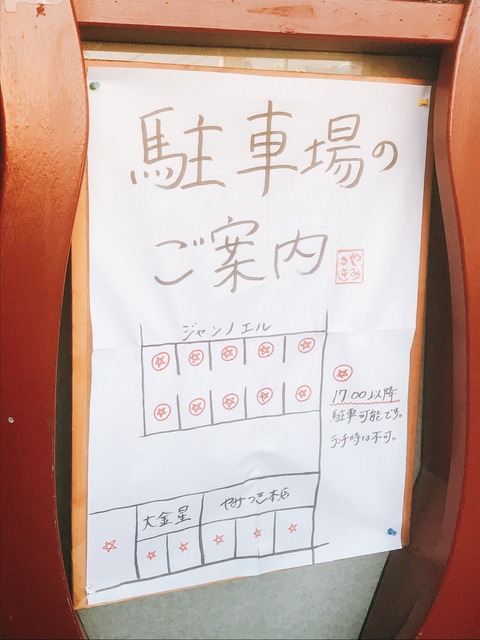 駐車場の
ご案内
やみ
つき
ジャンノエル
17:00以降
駐車可能です。
ランチ時は不可。
大金星
やみつき本店